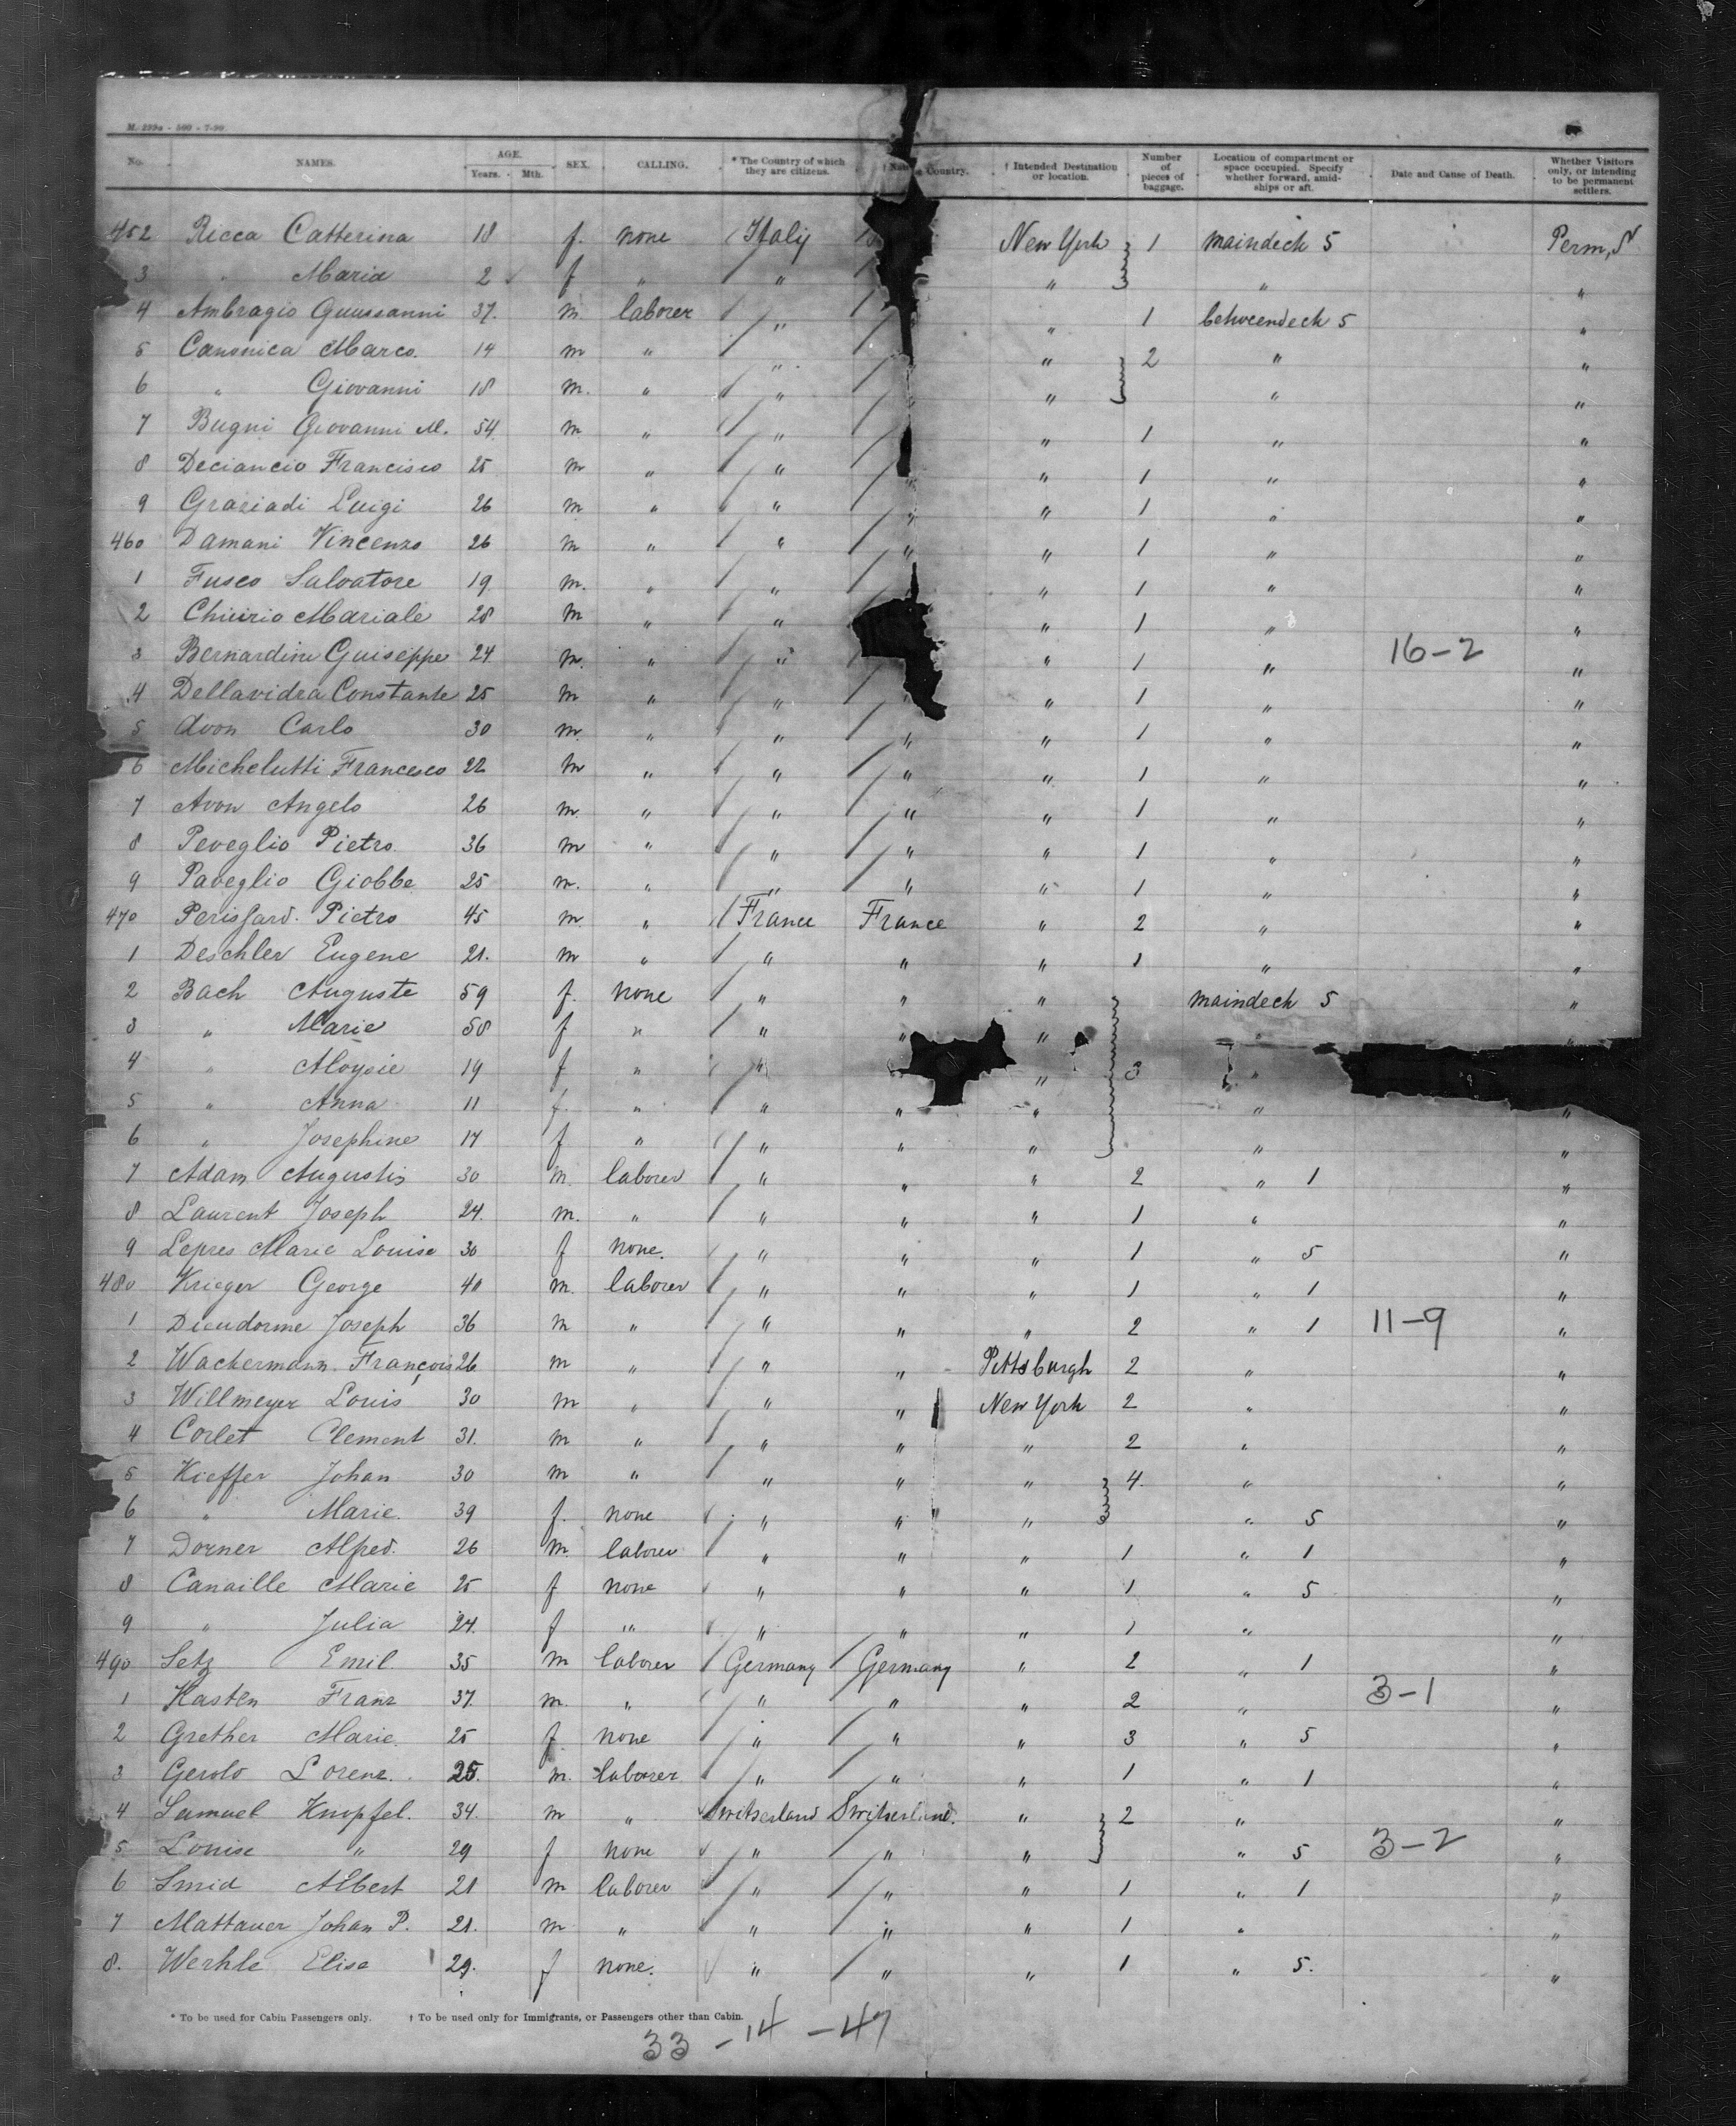 M. 299a - 500 - 7-90
No. NAMES. AGE. Years. Mth. SEX. CALLING. * The Country of which they are citizens. † Native Country. † Intended Destination or location. Number of pieces of baggage. Location of compartment or space occupied. Specify whether forward, amidships or aft. Date and Cause of Death. Whether Visitors only, or intending to be permanent settlers.
452 Ricca Catterina 18 f. none Italy New York 1 maindeck 5 Perm, S
3 " Maria 2 f " " " " "
4 Ambragio 37. m laborer " " 1 betweendeck 5 "
5 Canonica Marco. 14 m " " " 2 " "
6 " Giovanni 18 m. " " " " "
7 Bugni Giovanni M. 54. m " " " 1 " "
8 Deciancio Francisco 25 m " " " 1 " "
9 Graziadi Luigi 26 m " " " " 1 " "
460 Damani Vincenzo 26 m " " " " 1 " "
1 Fusco Salvatore 19. m. " " " 1 " "
2 Mariale 28 m " " " 1 " "
3 Bernardini Guiseppe 24 m. " " " 1 " 16-2 "
4 Dellavidea Constante 25 m " " " 1 " "
5 Avon Carlo 30 m. " " " " 1 " "
6 Michelutti Francesco 22 m " " " " 1 " "
7 Avon Angelo 26 m. " " " " 1 " "
8 Peveglio Pietro. 36 m " " " " 1 " "
9 Paveglio Giobbe 25 m. " " " " 1 " "
470 Perissard. Pietro 45 m " France France " 2 " "
1 Deschler Eugene 21. m " " " " 1 " "
2 Bach Auguste 59 f. none " " " maindeck 5 "
3 " Marie 58 f " " " " " "
4 " Aloysie 19 f " " " " 3 "
5 " Anna 11 f. " " " " " "
6 " Josephine 17 f " " " " " "
7 Adam Augustin 30 m. laborer " " " 2 " 1 "
8 Laurent Joseph 24. m. " " " " 1 " "
9 Lepres Marie Louise 30 f none. " " " 1 " 5 "
480 Krieger George 40 m. laborer " " " 1 " 1 "
1 Dieudorme Joseph 36 m " " " " 2 " 1 11-9 "
2 Wackermann. François 26 m " " " Pittsburgh 2 " "
3 Willmeyer Louis 30 m " " " New York 2 " "
4 Corlet Clement 31. m " " " " 2 " "
5 Kieffer Johan 30 m " " " " 4. " "
6 " Marie. 39 f. none " " " " 5 "
7 Dorner Alfred. 26 m. laborer " " " 1 " 1 "
8 Canaille Marie 25 f none " " " 1 " 5 "
9 " Julia 24. f " " " " 1 " "
490 Setz Emil. 35 m laborer Germany Germany " 2 " 1 "
1 Kasten Franz 37. m. " " " " 2 " 3-1 "
2 Grether Marie. 25 f none " " " 3 " 5 "
3 Gerolo Lorenz. 25. m. laborer " " " 1 " 1 "
4 Samuel Knopfel. 34. m " Switserland Switserland. " 2 " "
5 Louise " 29 f none " " " " 5 3-2 "
6 Smid Albert 21 m laborer " " " 1 " 1 "
7 Mattauer Johan P. 21. m " " " " 1 " "
8. Werhle Elise 29. f none. " " " 1 " 5. "
* To be used for Cabin Passengers only. † To be used only for Immigrants, or Passengers other than Cabin.
33 - 14 - 47